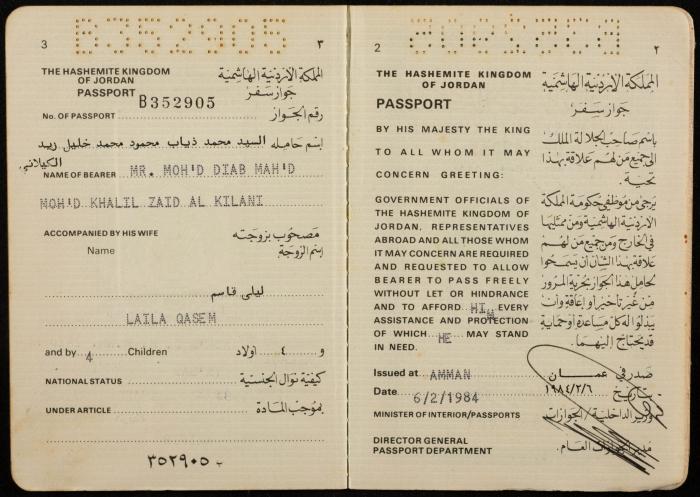 3
B352905
٣
THE HASHEMITE KINGDOM
OF JORDAN
PASSPORT
المملكة الأردنية الهاشمية
جواز سفر
No. OF PASSPORT B352905 رقم الجواز
إسم حامله السيد محمد ذياب محمود محمد خليل زيد
الكيلاني
NAME OF BEARER MR. MOH'D DIAB MAH'D
MOH'D KHALIL ZAID AL KILANI
ACCOMPANIED BY HIS WIFE مصحوب بزوجته
Name إسم الزوجة
ليلى قاسم
LAILA QASEM
and by 4 Children و ٤ اولاد
NATIONAL STATUS كيفية نوال الجنسية
UNDER ARTICLE بموجب المادة
٣٥٢٩٠٥
2
٢
THE HASHEMITE KINGDOM
OF JORDAN
PASSPORT
BY HIS MAJESTY THE KING
TO ALL WHOM IT MAY
CONCERN GREETING:
GOVERNMENT OFFICIALS OF
THE HASHEMITE KINGDOM OF
JORDAN, REPRESENTATIVES
ABROAD AND ALL THOSE WHOM
IT MAY CONCERN ARE REQUIRED
AND REQUESTED TO ALLOW
BEARER TO PASS FREELY
WITHOUT LET OR HINDRANCE
AND TO AFFORD HIM EVERY
ASSISTANCE AND PROTECTION
OF WHICH HE MAY STAND
IN NEED.
المملكة الأردنية الهاشمية
جواز سفر
باسم صاحب الجلالة الملك
الى جميع من لهم علاقة بهذا
تحية.
يرجى من موظفي حكومة المملكة
الأردنية الهاشمية ومن ممثليها
في الخارج ومن جميع من لهم
علاقة بهذا الشأن أن يسمحوا
لحامل هذا الجواز بحرية المرور
من غير تأخير أو إعاقة وأن
يبذلوا له كل مساعدة أو حماية
قد يحتاج إليهما.
Issued at AMMAN صدر في عمان
Date 6/2/1984 بتاريخ ١٩٨٤/٢/٦
MINISTER OF INTERIOR/PASSPORTS وزير الداخلية/الجوازات
DIRECTOR GENERAL
PASSPORT DEPARTMENT مدير الجوازات العام.